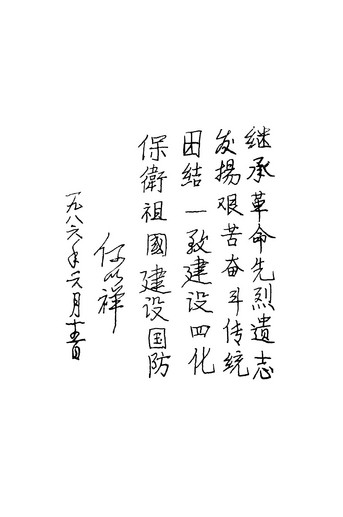 继承革命先烈遗志
发揚艰苦奋斗传统
团结一致建设四化
保衛祖國建设国防
何以祥
一九八六年六月十五日